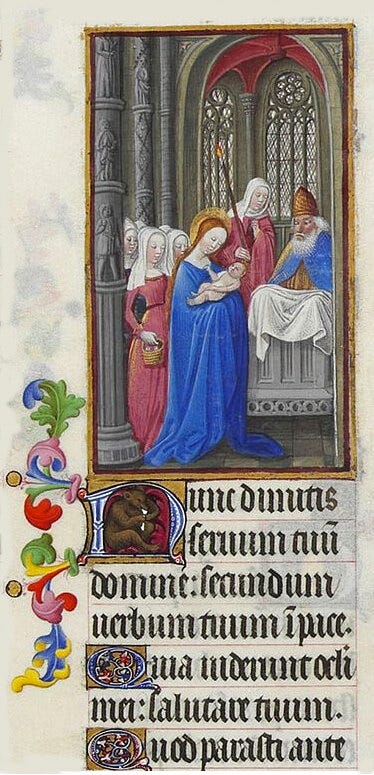 Nunc dimitis
seruum tuū
domine: secundum
uerbum tuum ī pace.
Quia uiderunt ocli
mei: salutare tuum.
Quod parasti ante